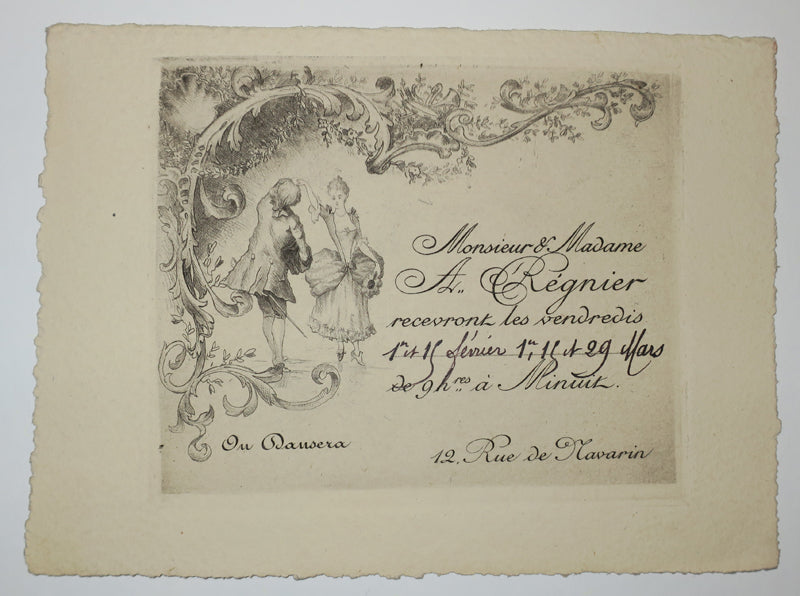 Monsieur & Madame
A. Régnier
recevront les vendredis
1er et 15 février 1er, 15 et 29 Mars
de 9 hres à Minuit.
On Dansera
12, Rue de Navarin